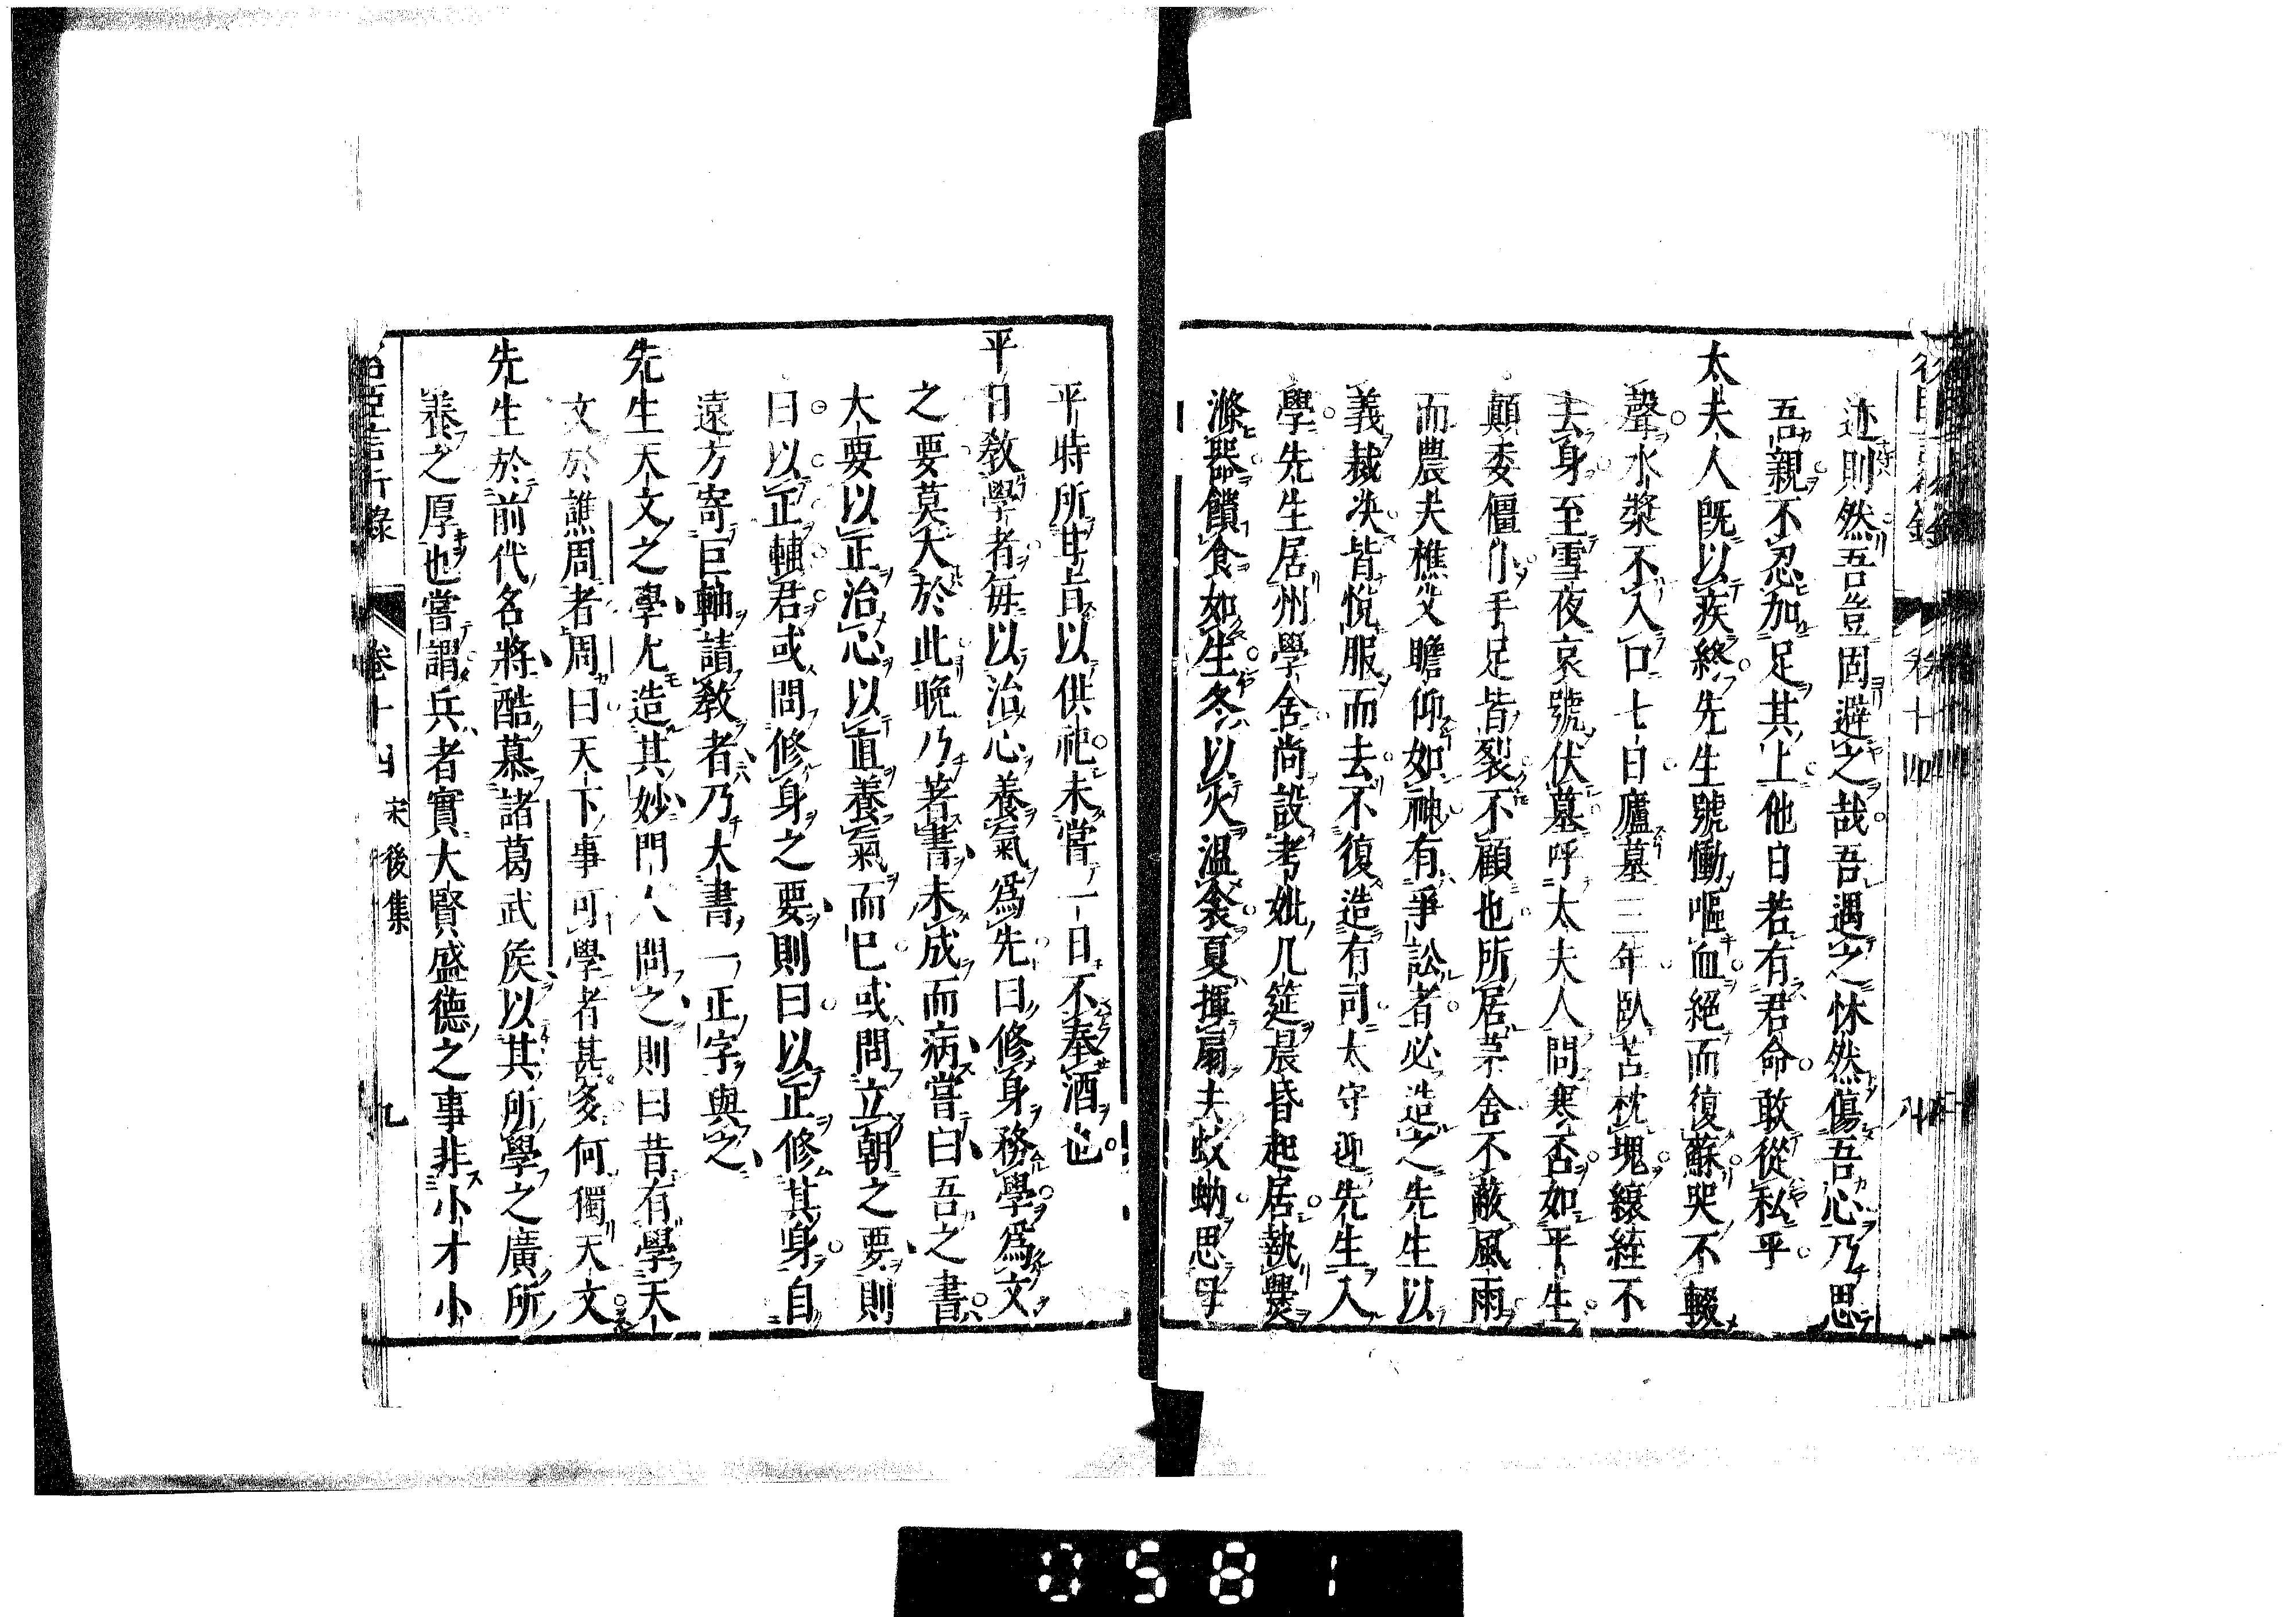 迹則然吾豈固避之哉吾遇之怵然傷吾心乃思
吾親不忍加足其上他日若有君命敢從私乎
太夫人既以疾終先生號慟嘔血絕而復蘇哭不輟
聲水漿不入口七日廬墓三年臥苫枕塊縗絰不
去身至雪夜哀號伏墓呼太夫人問寒否如平生
顛委僵仆手足皆裂不顧也所居茅舍不蔽風雨
而農夫樵父瞻仰如神有爭訟者必造之先生以
義裁决皆悅服而去不復造有司太守迎先生入
學先生居州學舍尚設考妣几筵晨昏起居執爨
滌器饋食如生冬以火溫衾夏揮扇夫蚊蚋思母
平時所甘旨以供祀未嘗一日不奉酒也
平日敎學者每以治心養氣爲先曰修身務學爲文
之要莫大於此晚乃著書未成而病嘗白吾之書
大要以正治心以直養氣而已或問立朝之要則
曰以正輔君或問修身之要則曰以正修其身自
遠方寄巨軸請敎者乃大書一正字與之
先生天文之學尤造其妙門人問之則曰昔有學天
文於譙周者周曰天下事可學者甚多何獨天文
先生於前代名將酷慕諸葛武侯以其所學之廣所
養之厚也嘗謂兵者實大賢盛德之事非小才小
名臣言行錄 卷十四 宋後集 九
0581